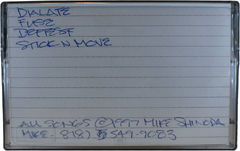 DIALATE
FUSE
DEPTESF
STICK-N MOVE
ALL SONGS ©1997 MIKE SHINODA
MIKE- (818) 549-9023